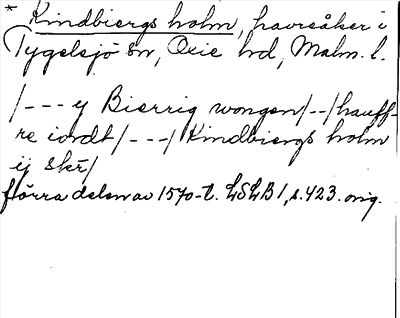 * Kindbiergs holm, havreåker i
Tygelsjö sn, Oxie hd, Malm. l.
/--- y Bierrig wongen/--/hauff-
re iordt/---/Kindbiergs holm
ij skr/
förra delen av 1570-t. LSLB 1, s. 423. orig.